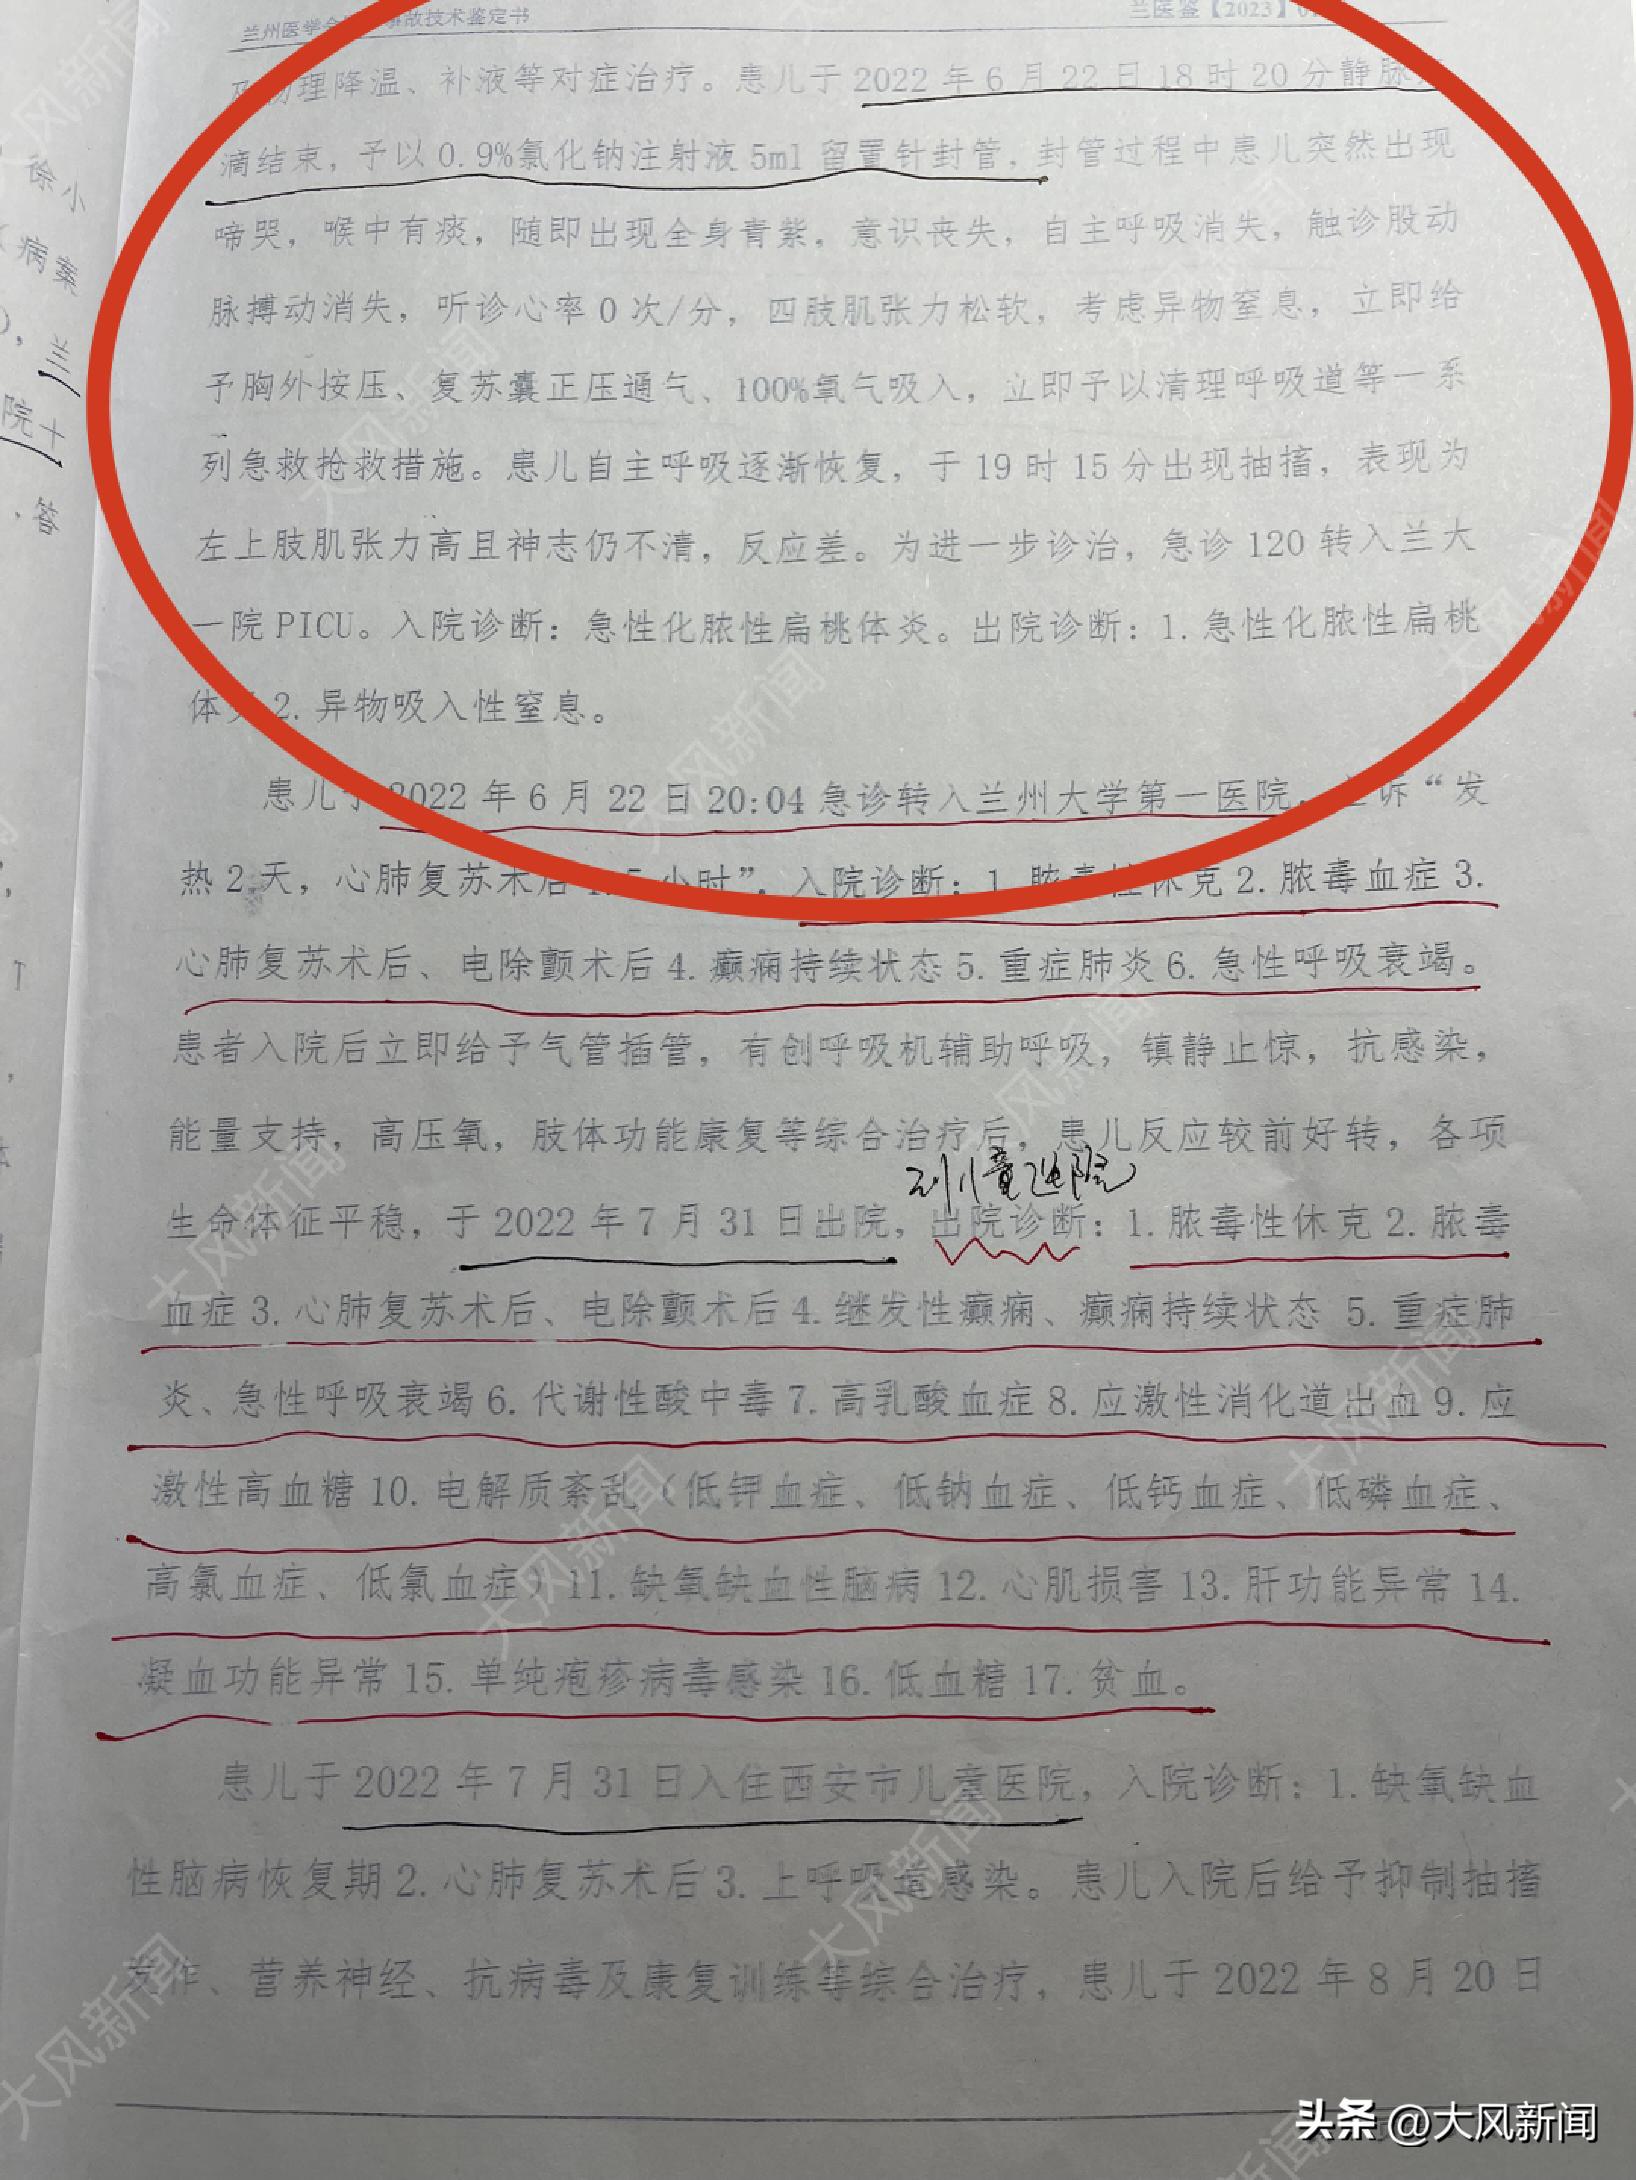 兰州医学会 事故技术鉴定书
兰医鉴【2023】0
及物理降温、补液等对症治疗。患儿于 2022 年 6 月 22 日 18 时 20 分静脉
滴结束，予以 0.9%氯化钠注射液 5ml 留置针封管，封管过程中患儿突然出现
啼哭，喉中有痰，随即出现全身青紫，意识丧失，自主呼吸消失，触诊股动
脉搏动消失，听诊心率 0 次/分，四肢肌张力松软，考虑异物窒息，立即给
予胸外按压、复苏囊正压通气、100%氧气吸入，立即予以清理呼吸道等一系
列急救抢救措施。患儿自主呼吸逐渐恢复，于 19 时 15 分出现抽搐，表现为
左上肢肌张力高且神志仍不清，反应差。为进一步诊治，急诊 120 转入兰大
一院 PICU。入院诊断：急性化脓性扁桃体炎。出院诊断：1. 急性化脓性扁桃
体炎 2. 异物吸入性窒息。
患儿于 2022 年 6 月 22 日 20:04 急诊转入兰州大学第一医院，主诉“发
热 2 天，心肺复苏术后 1.5 小时”。入院诊断：1. 脓毒性休克 2. 脓毒血症 3.
心肺复苏术后、电除颤术后 4. 癫痫持续状态 5. 重症肺炎 6. 急性呼吸衰竭。
患者入院后立即给予气管插管，有创呼吸机辅助呼吸，镇静止惊，抗感染，
能量支持，高压氧，肢体功能康复等综合治疗后，患儿反应较前好转，各项
到儿童医院
生命体征平稳，于 2022 年 7 月 31 日出院，出院诊断：1. 脓毒性休克 2. 脓毒
血症 3. 心肺复苏术后、电除颤术后 4. 继发性癫痫、癫痫持续状态 5. 重症肺
炎、急性呼吸衰竭 6. 代谢性酸中毒 7. 高乳酸血症 8. 应激性消化道出血 9. 应
激性高血糖 10. 电解质紊乱（低钾血症、低钠血症、低钙血症、低磷血症、
高氯血症、低氯血症）11. 缺氧缺血性脑病 12. 心肌损害 13. 肝功能异常 14.
凝血功能异常 15. 单纯疱疹病毒感染 16. 低血糖 17. 贫血。
患儿于 2022 年 7 月 31 日入住西安市儿童医院，入院诊断：1. 缺氧缺血
性脑病恢复期 2. 心肺复苏术后 3. 上呼吸道感染。患儿入院后给予抑制抽搐
发作、营养神经、抗病毒及康复训练等综合治疗，患儿于 2022 年 8 月 20 日
徐小
病案
兰
院十
答
头条 @大风新闻
大风新闻